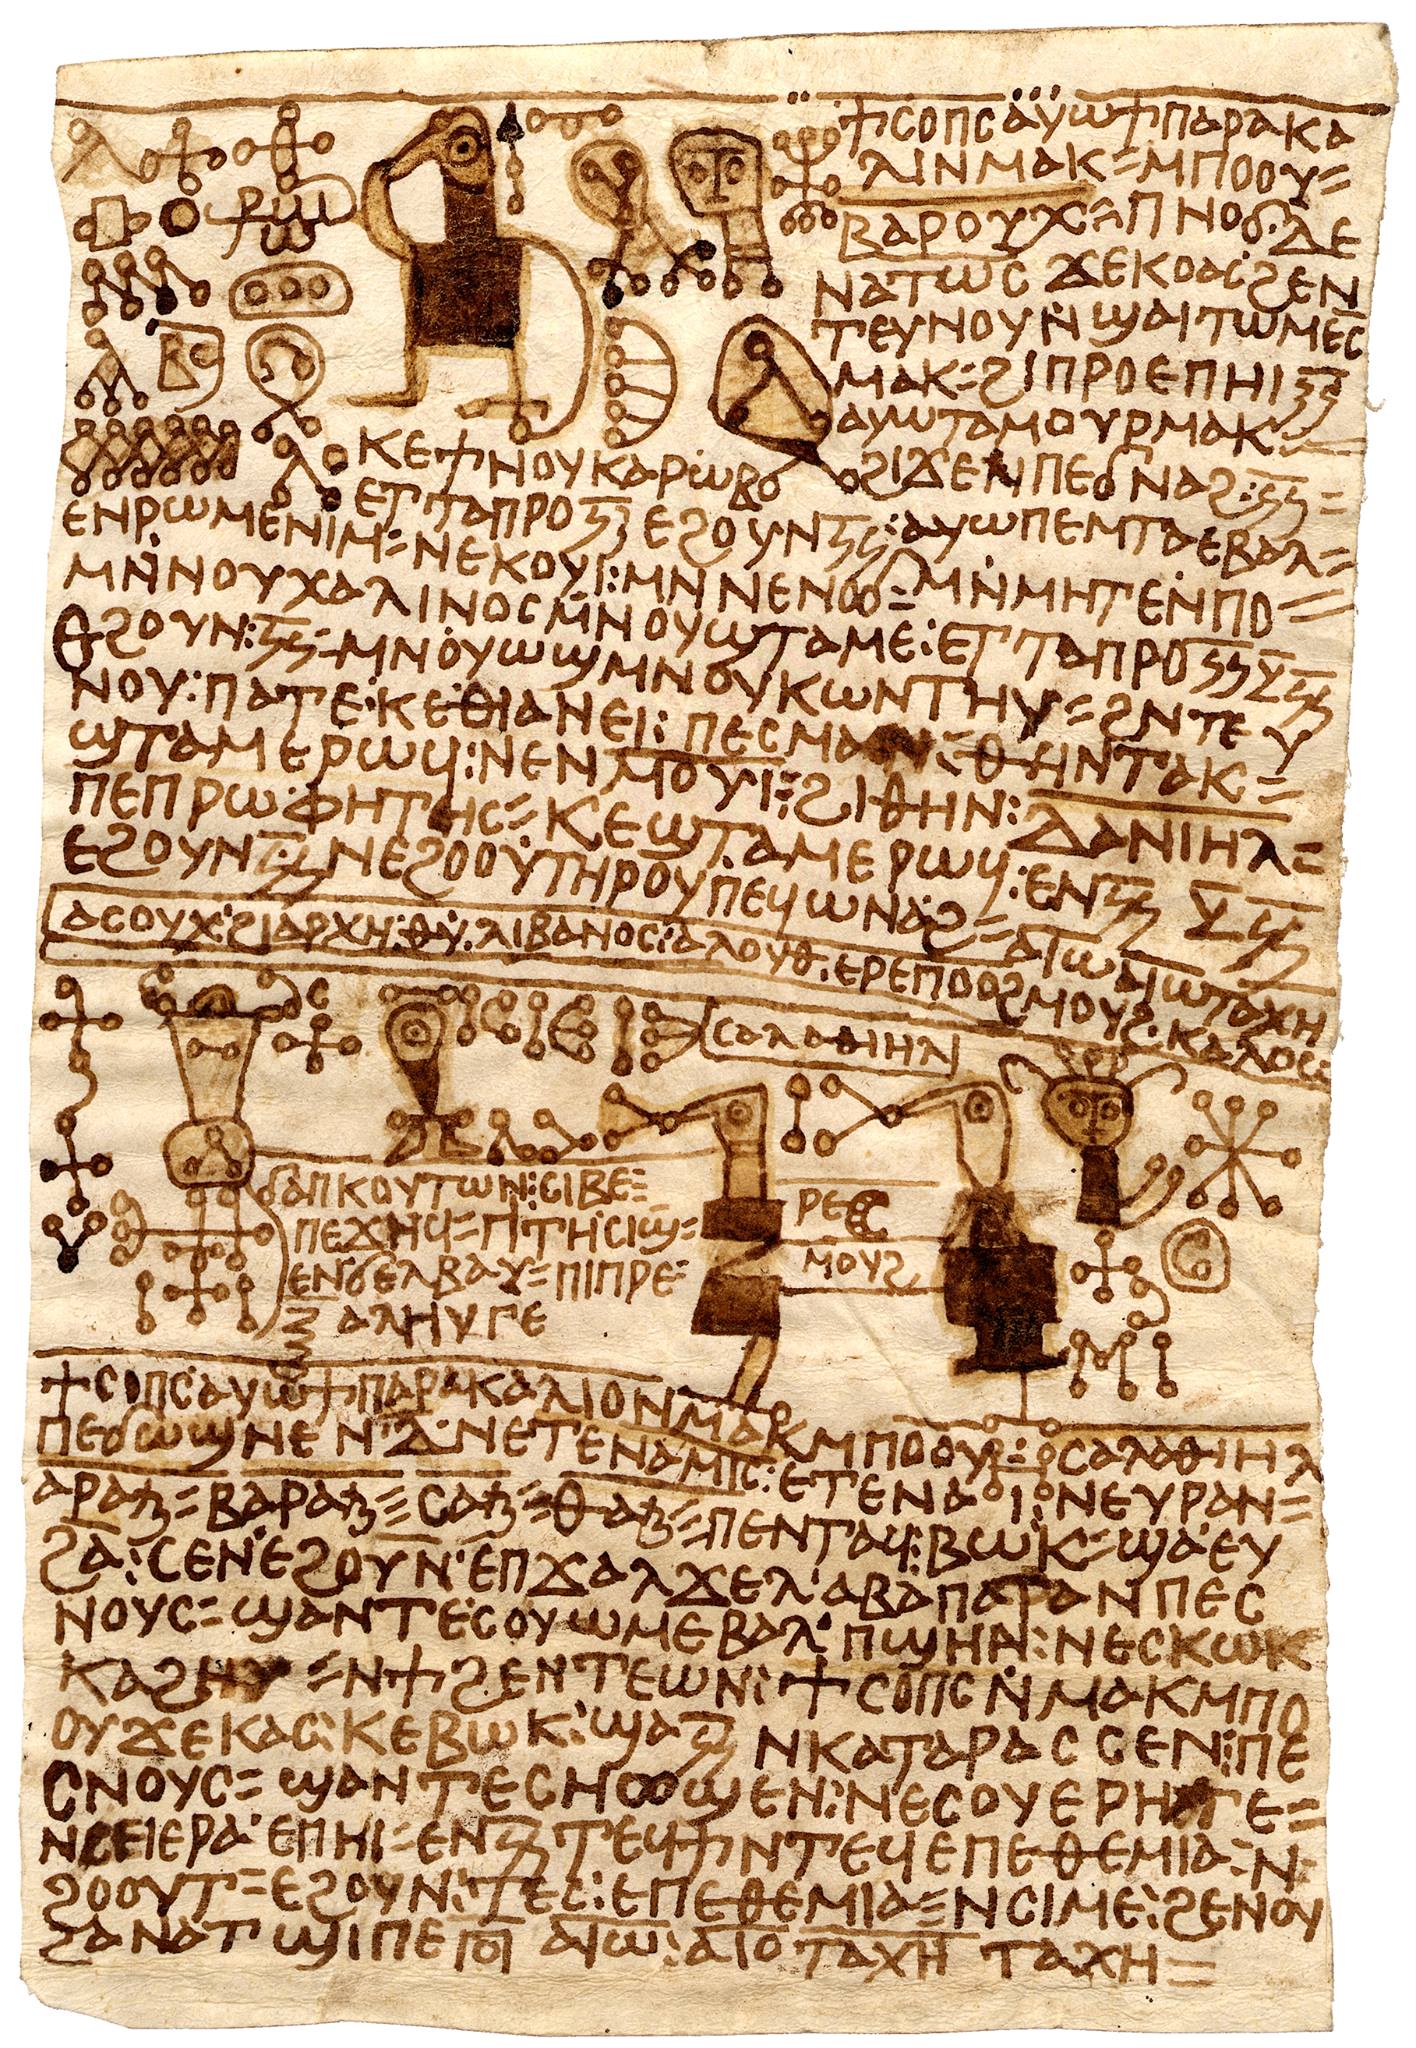 ϯⲥⲟⲡⲥⲁⲩⲱϯⲡⲁⲣⲁⲕⲁ
ⲗⲓⲛⲙⲁⲕ=ⲙⲡⲟⲟⲩ=
ⲃⲁⲣⲟⲩⲭ=ⲡⲛⲟϭ·ⲇⲉ
ⲛⲁⲧⲱⲥ ϫⲉⲕⲟⲁⲥϩⲉⲛ
ⲧⲉⲩⲛⲟⲩⲛϣⲁⲓⲧⲱⲙⲉⲥ
ⲙⲁⲕ=ϩⲓⲡⲣⲟⲉⲡⲏⲓ
ⲁⲩⲱⲧⲁⲙⲟⲩⲣⲙⲁⲕ
ϩⲓϫⲉⲛⲡⲉϭⲛⲁϩ:
ⲕⲉϯⲛⲟⲩⲕⲁⲣⲱⲃ
ⲉⲧⲧⲁⲡⲣⲟ ⲉϩⲟⲩⲛ :ⲁⲩⲱⲡⲉⲙⲧⲁⲉⲃⲁⲗ=
ⲉⲛⲣⲱⲙⲉⲛⲓⲙ=ⲛⲉⲕⲟⲩⲓ:ⲙⲛⲛⲉⲛⲟϭ=ⲙⲛⲙⲏⲧⲉⲛⲡⲟ=
ⲙⲛⲛⲟⲩⲭⲁⲗⲓⲛⲟⲥⲙⲛⲟⲩϣⲧⲁⲙⲉ:ⲉⲧⲧⲁⲡⲣⲟ
ⲉϩⲟⲩⲛ: =ⲙⲛⲟⲩⲱϣⲙⲛⲟⲩⲕⲱⲛⲧⲏⲩ=ϩⲛⲧⲉⲩ
ⲛⲟⲩ:ⲡⲁⲧⲉ·ⲕⲉⲑⲓⲁⲛⲉⲓ: ⲡⲉⲥⲙⲁ =ⲑⲏⲛⲧⲁⲕ=
ϣⲧⲁⲙⲉⲣⲱϥ:ⲛⲉⲛⲙⲟⲩⲓ=ϩⲓⲑⲏⲛ:ⲇⲁⲛⲓⲏⲗ=
ⲡⲉⲡⲣⲱⲫⲏⲧⲏⲥ=ⲕⲉϣⲧⲁⲙⲉⲣⲱϥ:ⲉⲛ
ⲉϩⲟⲩⲛ ⲛⲉϩⲟⲟⲩⲧⲏⲣⲟⲩⲡⲉϥⲱⲛⲁϩ=ⲁⲓⲱⲁⲓⲱⲧⲁⲭⲏ
ⲁⲥⲟⲩⲭ:ϩⲓⲁⲣⲭⲏ:ⲑⲩ:ⲗⲓⲃⲁⲛⲟⲥ:ⲁⲗⲟⲩⲑ:ⲉⲣⲉⲡⲟⲟϩⲙⲟⲩϩ:ⲕⲁⲗⲟⲥ:
ⲥⲁⲗⲁⲑⲓⲏⲗ
ϭⲁⲡⲕⲟⲩⲧⲱⲛ:ⲥⲓⲃⲉ=
ⲡⲉϫⲏϥ=ⲡⲧⲏⲥⲓϣ=
ⲉⲛϭⲉⲗⲃⲁⲩ=ⲡⲓⲡⲣⲉ=
ⲁⲗⲏⲩⲅⲉ
ⲣⲉϥ
ⲙⲟⲩϩ
ϯⲥⲟⲡⲥⲁⲩⲱϯⲡⲁⲣⲁⲕⲁⲗⲓⲟⲛⲙⲁⲕⲙⲡⲟⲟⲩ:ⲥⲁⲗⲁⲑⲓⲏⲗ
ⲡⲉϭⲱϣⲛⲉⲛⲇ·ⲛⲉⲧⲉⲛⲁⲙⲓⲥ:ⲉⲧⲉⲛⲁⲓ:ⲛⲉⲩⲣⲁⲛ=
ⲁⲣⲁⲝ=ⲃⲁⲣⲁⲝ=ⲥⲁⲝ=ⲑⲁⲝ=ⲡⲉⲛⲧⲁϥ:ⲃⲱⲕ=ϣⲁⲉⲩ
ϩⲁ:ⲥⲉⲛⲉϩⲟⲩⲛ·ⲉⲡϫⲁⲗϫⲉⲗⲁⲃⲁⲡⲁⲧⲁⲛⲡⲉⲥ
ⲛⲟⲩⲥ=ϣⲁⲛⲧⲉⲥⲟⲩⲱⲙⲉⲃⲁⲗ·ⲡϣⲏⲛ:ⲛⲉⲥⲕⲱⲕ
ⲕⲁϩⲏⲩ=ⲛϯϩⲉⲛⲧⲉⲱⲛ:ϯⲥⲟⲡⲥⲛⲙⲁⲕⲙⲡⲟ
ⲟⲩϫⲉⲕⲁⲥ:ⲕⲉⲃⲱⲕ:ϣⲁ ⲛⲕⲁⲧⲁⲣⲁⲥⲥⲉⲛ:ⲡⲉ
ⲥⲛⲟⲩⲥ=ϣⲁⲛⲧⲉⲥⲏ ϣⲉⲛ:ⲛⲉⲥⲟⲩⲉⲣⲏⲧⲉ=
ⲛⲥⲉⲓⲉⲣⲁ·ⲉⲡⲏⲓ=ⲉⲛ ⲧⲉϥϯⲛⲧⲉϥⲉⲡⲉⲑⲉⲙⲓⲁ=ⲛ
ϩⲟⲟⲩⲧ=ⲉϩⲟⲩⲛ:ⲧⲉⲥ:ⲉⲡⲉⲑⲉⲙⲓⲁ=ⲛⲥⲓⲙⲉ:ϩⲉⲛⲟⲩ
ϩⲁⲛⲁⲧϣⲓⲡⲉ ⲁⲓⲱ:ⲁⲓⲟⲧⲁⲭⲏ ⲧⲁⲭⲏ=